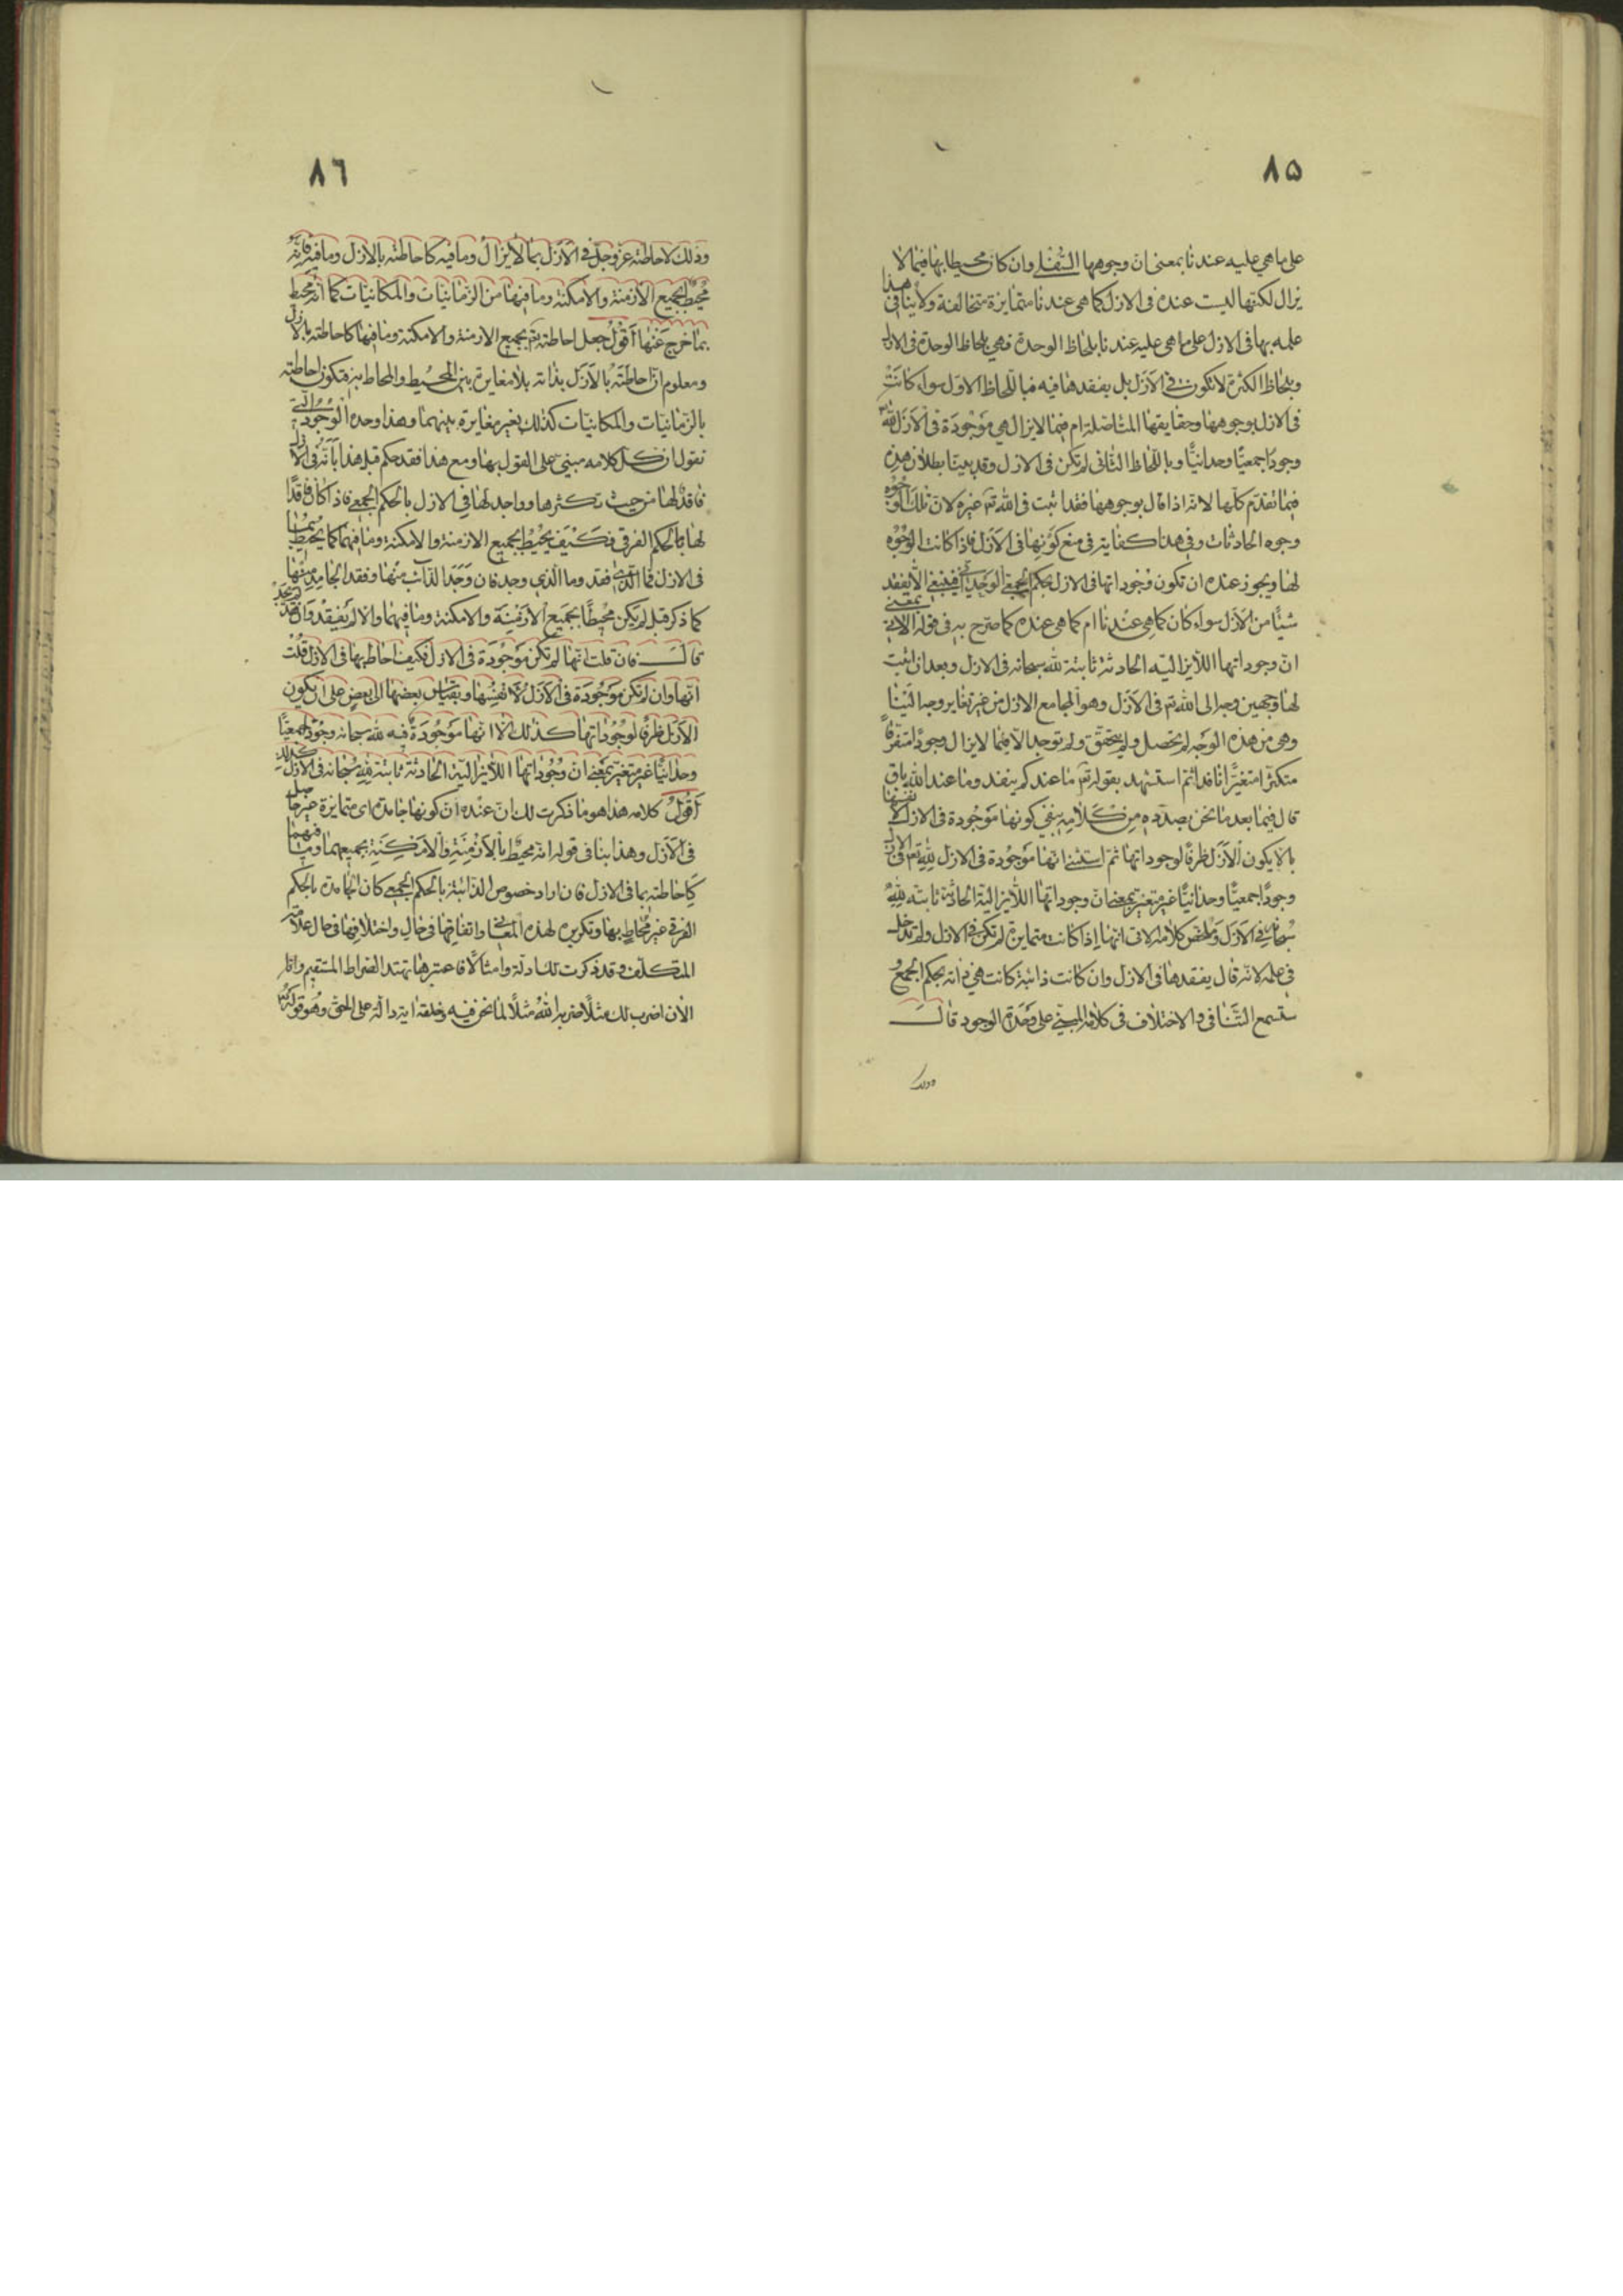 ٨٥
على ما هي عليه عندنا بمعنى ان وجوهها السفلى وان كان محيطا بها فيما لا
يزال لكنها ليست عنده فى الازل كما هى عندنا متمايزة متخالفة ولا ينافى هذا
علمه بها فى الازل على ما هى عليه عندنا بلحاظ الوحدة فهى بلحاظ الوحدة فى الازل
وبلحاظ الكثرة لا تكون فى الازل بل يفقدها فيه فباللحاظ الاول سواء كانت
فى الازل بوجوهها وحقايقها المتاصلة ام فيما لا يزال هى موجودة فى الازل لله
وجودا جمعيا وحدانيا وباللحاظ الثانى لم تكن فى الازل وقد بينا بطلان هذه
فيما تقدم كلها لانه اذا قال بوجوهها فقد اثبت فى الله تع غيره لان تلك الوجوه
وجوه الحادثات وفى هذا كفاية فى منع كونها فى الازل فاذا كانت الوجوه
لها ويجوز عنده ان تكون وجوداتها فى الازل بحكم الجمعى الوحدانى فينبغى الا يفقد
شيئا من الازل سواء كان كما هى عندنا ام كما هى عنده كما صرح به فى قوله الاتى بمعنى
ان وجوداتها اللايزالية الحادثة ثابتة لله سبحانه فى الازل وبعد ان اثبت
لها وجهين وجه الى الله تع فى الازل وهو الجامع الازل من غير تغاير وجه الينا
وهى من هذه الوجه لم تحصل ولم يتحقق ولم توجد الا فيما لا يزال وجودا متفرقا
متكثرا متغيرا نافدا ثم استشهد بقوله تع ما عندكم ينفد وما عند الله باق
قال فيما بعد ما نحن بصدده من كلامه ينفى كونها موجودة فى الازل لانفسها
بالا يكون الازل ظرفا لوجوداتها ثم استثنى انها موجودة فى الازل لله تع فى الازل
وجودا جمعيا وحدانيا غير متغير بمعنى ان وجوداتها اللايزالية الحادثة ثابتة لله
سبحانه فى الازل وملخص كلامه الاتى انها اذا كانت متمايزة لم تكن فى الازل ولم تدخل
فى علمه لانه قال يفقدها فى الازل وان كانت ذائبة كانت هى ذاته بحكم الجمع و
ستسمع التنافى والاختلاف فى كلامه المبنى على وحدة الوجود قال
وذلك
٨٦
وذلك لاحاطته عز وجل فى الازل بما لا يزال وما فيه كاحاطته بالازل وما فيه فانه
محيط بجميع الازمنة والامكنة وما فيها من الزمانيات والمكانيات كما انه محيط
بما خرج عنها اقول جعل احاطته تع بجميع الازمنة والامكنة وما فيها كاحاطته بالازل
ومعلوم ان احاطته بالازل بذاته بلا مغايرة بين المحيط والمحاط به فتكون احاطته
بالزمانيات والمكانيات كذلك بغير مغايرة بينهما وهذا وحدة الوجود التى
نقول ان كل كلامه مبنى على القول بها ومع هذا فقد حكم قبل هذا بانه فى الازل
فاقد لها من حيث تكثرها وواجد لها فى الازل بالحكم الجمعى فاذا كان فاقدا
لها بالحكم الفرقى فكيف يحيط بجميع الازمنة والامكنة وما فيهما كما يحيط بهما
فى الازل فما الذى فقد وما الذى وجد فان وجد الذائب منها وفقد الجامد منها
كما ذكر قبل لم يكن محيطا بجميع الازمنة والامكنة وما فيهما والا لم يفقد وان فقد لم يجد
قال فان قلت انها لم تكن موجودة فى الازل فكيف احاط بها فى الازل قلت
انها وان لم تكن موجودة فى الازل لانفسها وبقياس بعضها الى بعض على ان يكون
الازل ظرفا لوجوداتها كذلك الا انها موجودة فيه لله سبحانه وجودا جمعيا
وحدانيا غير متغير بمعنى ان وجوداتها اللايزالية الحادثة ثابتة لله سبحانه فى الازل كذلك
اقول كلامه هذا هو ما ذكرت لك ان عنده ان كونها جامدة اى متمايزة غير حاصل
فى الازل وهذا ينافى قوله انه محيط بالازمنة والامكنة بجميعهما وبما فيهما
كاحاطته بما فى الازل فان اراد خصوص الذائبة بالحكم الجمعى كان الجامدة بالحكم
الفرقى غير محاط بها وتكريره لهذه المعانى واتفاقها فى حال واختلافها فى حال علامة
المتكلف وقد ذكرت لك ادلة وامثالا فاعتبر بها تهتد الصراط المستقيم وانا
الان اضرب لك مثلا ضربه الله مثلا لما نحن فيه وخلقه اية دالة على الحق وهو قوله